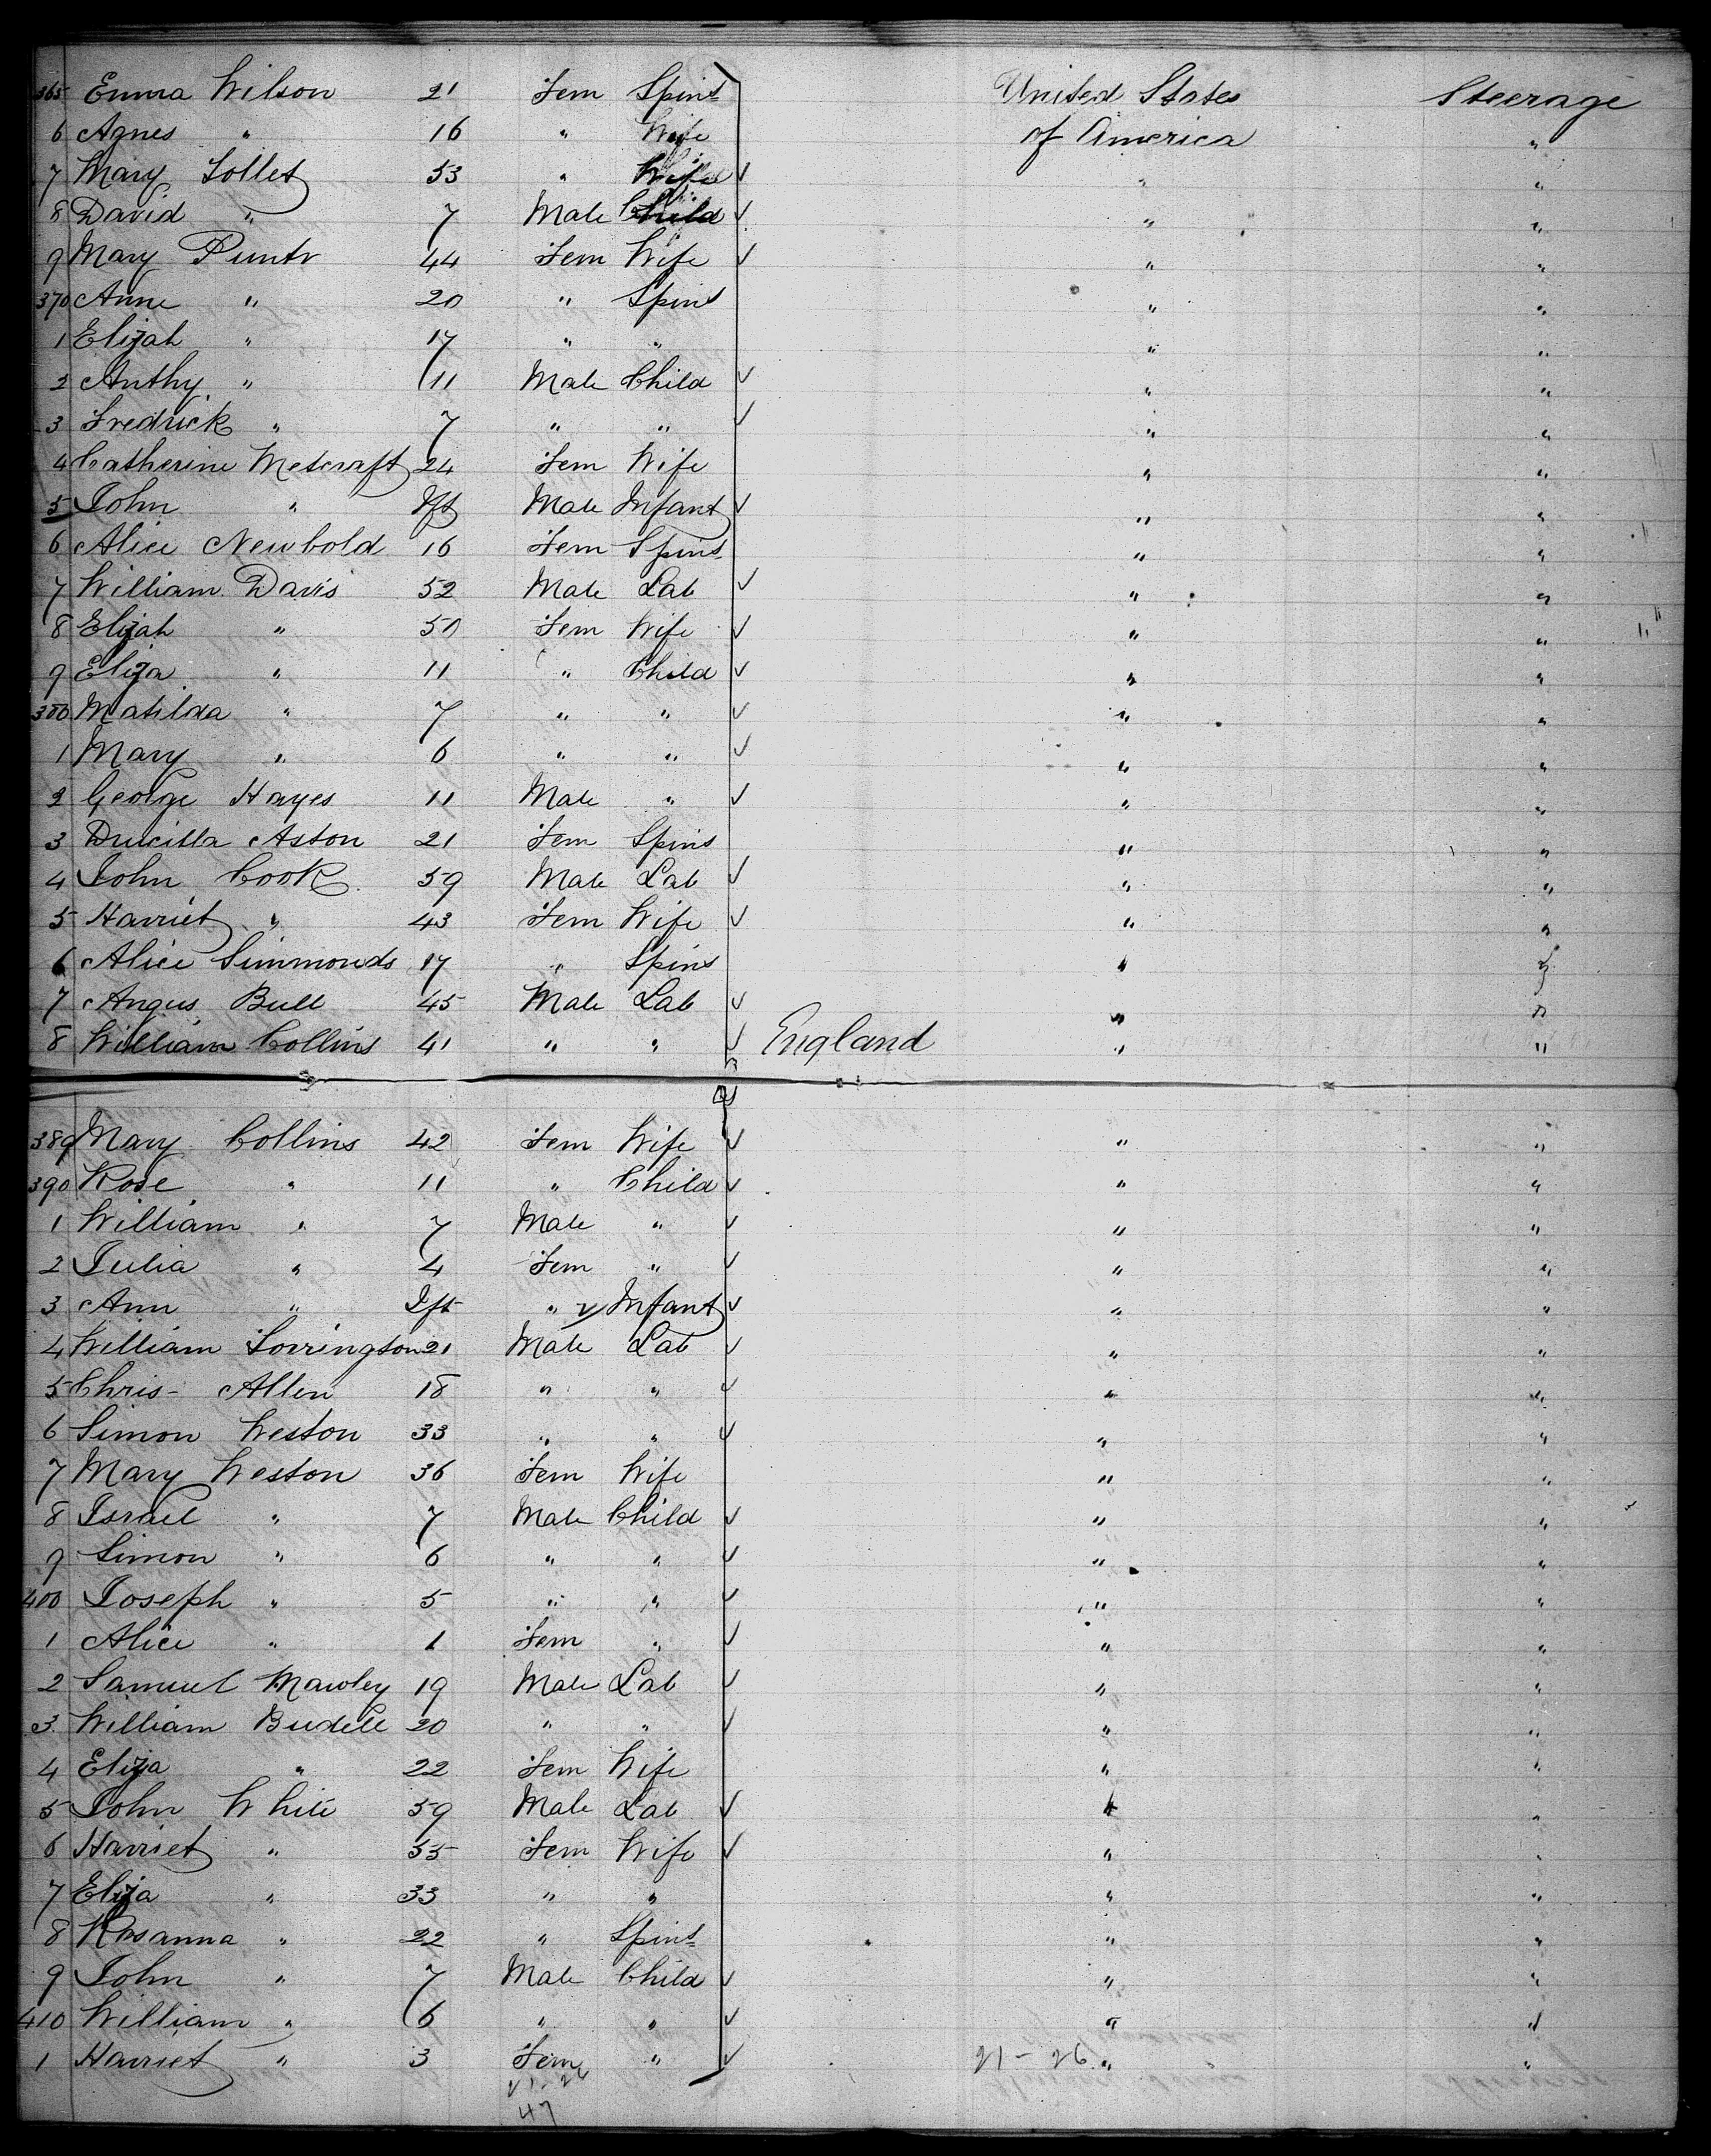 365 Emma Wilson 21 Fem Spins United States Steerage
6 Agnes " 16 " Wife of America "
7 Mary Follet 53 " Wife " "
8 David " 7 Male Child " "
9 Mary Puntr 44 Fem Wife " "
370 Anne " 20 " Spins " "
1 Elizah " 17 " " " "
2 Anthy " 11 Male Child " "
3 Fredrick " 7 " " " "
4 Catherine Metcraft 24 Fem Wife " "
5 John " Ift Male Infant " "
6 Alice Newbold 16 Fem Spins " "
7 William Davis 52 Male Lab " "
8 Elizah " 50 Fem Wife " "
9 Eliza " 11 " Child " "
380 Matilda " 7 " " " "
1 Mary " 6 " " " "
2 George Hayes 11 Male " " "
3 Drucilla Aston 21 Fem Spins " "
4 John Cook 59 Male Lab " "
5 Harriet " 43 Fem Wife " "
6 Alice Simmonds 17 " Spins " "
7 Angus Bull 45 Male Lab " "
8 William Collins 41 " " England " "
389 Mary Collins 42 Fem Wife " "
390 Rose " 11 " Child " "
1 William " 7 Male " " "
2 Julia " 4 Fem " " "
3 Ann " Ift " Infant " "
4 William Torrington 21 Male Lab " "
5 Chris- Allen 18 " " " "
6 Simon Weston 33 " " " "
7 Mary Weston 36 Fem Wife " "
8 Israel " 7 Male Child " "
9 Simon " 6 " " " "
400 Joseph " 5 " " " "
1 Alice " 1 Fem " " "
2 Samuel Mawley 19 Male Lab " "
3 William Budell 20 " " " "
4 Eliza " 22 Fem Wife " "
5 John White 59 Male Lab " "
6 Harriet " 55 Fem Wife " "
7 Eliza " 33 " " " "
8 Rosanna " 22 " Spins " "
9 John " 7 Male Child " "
410 William " 6 " " " "
1 Harriet " 3 Fem " 21-26 " "
21-26
47